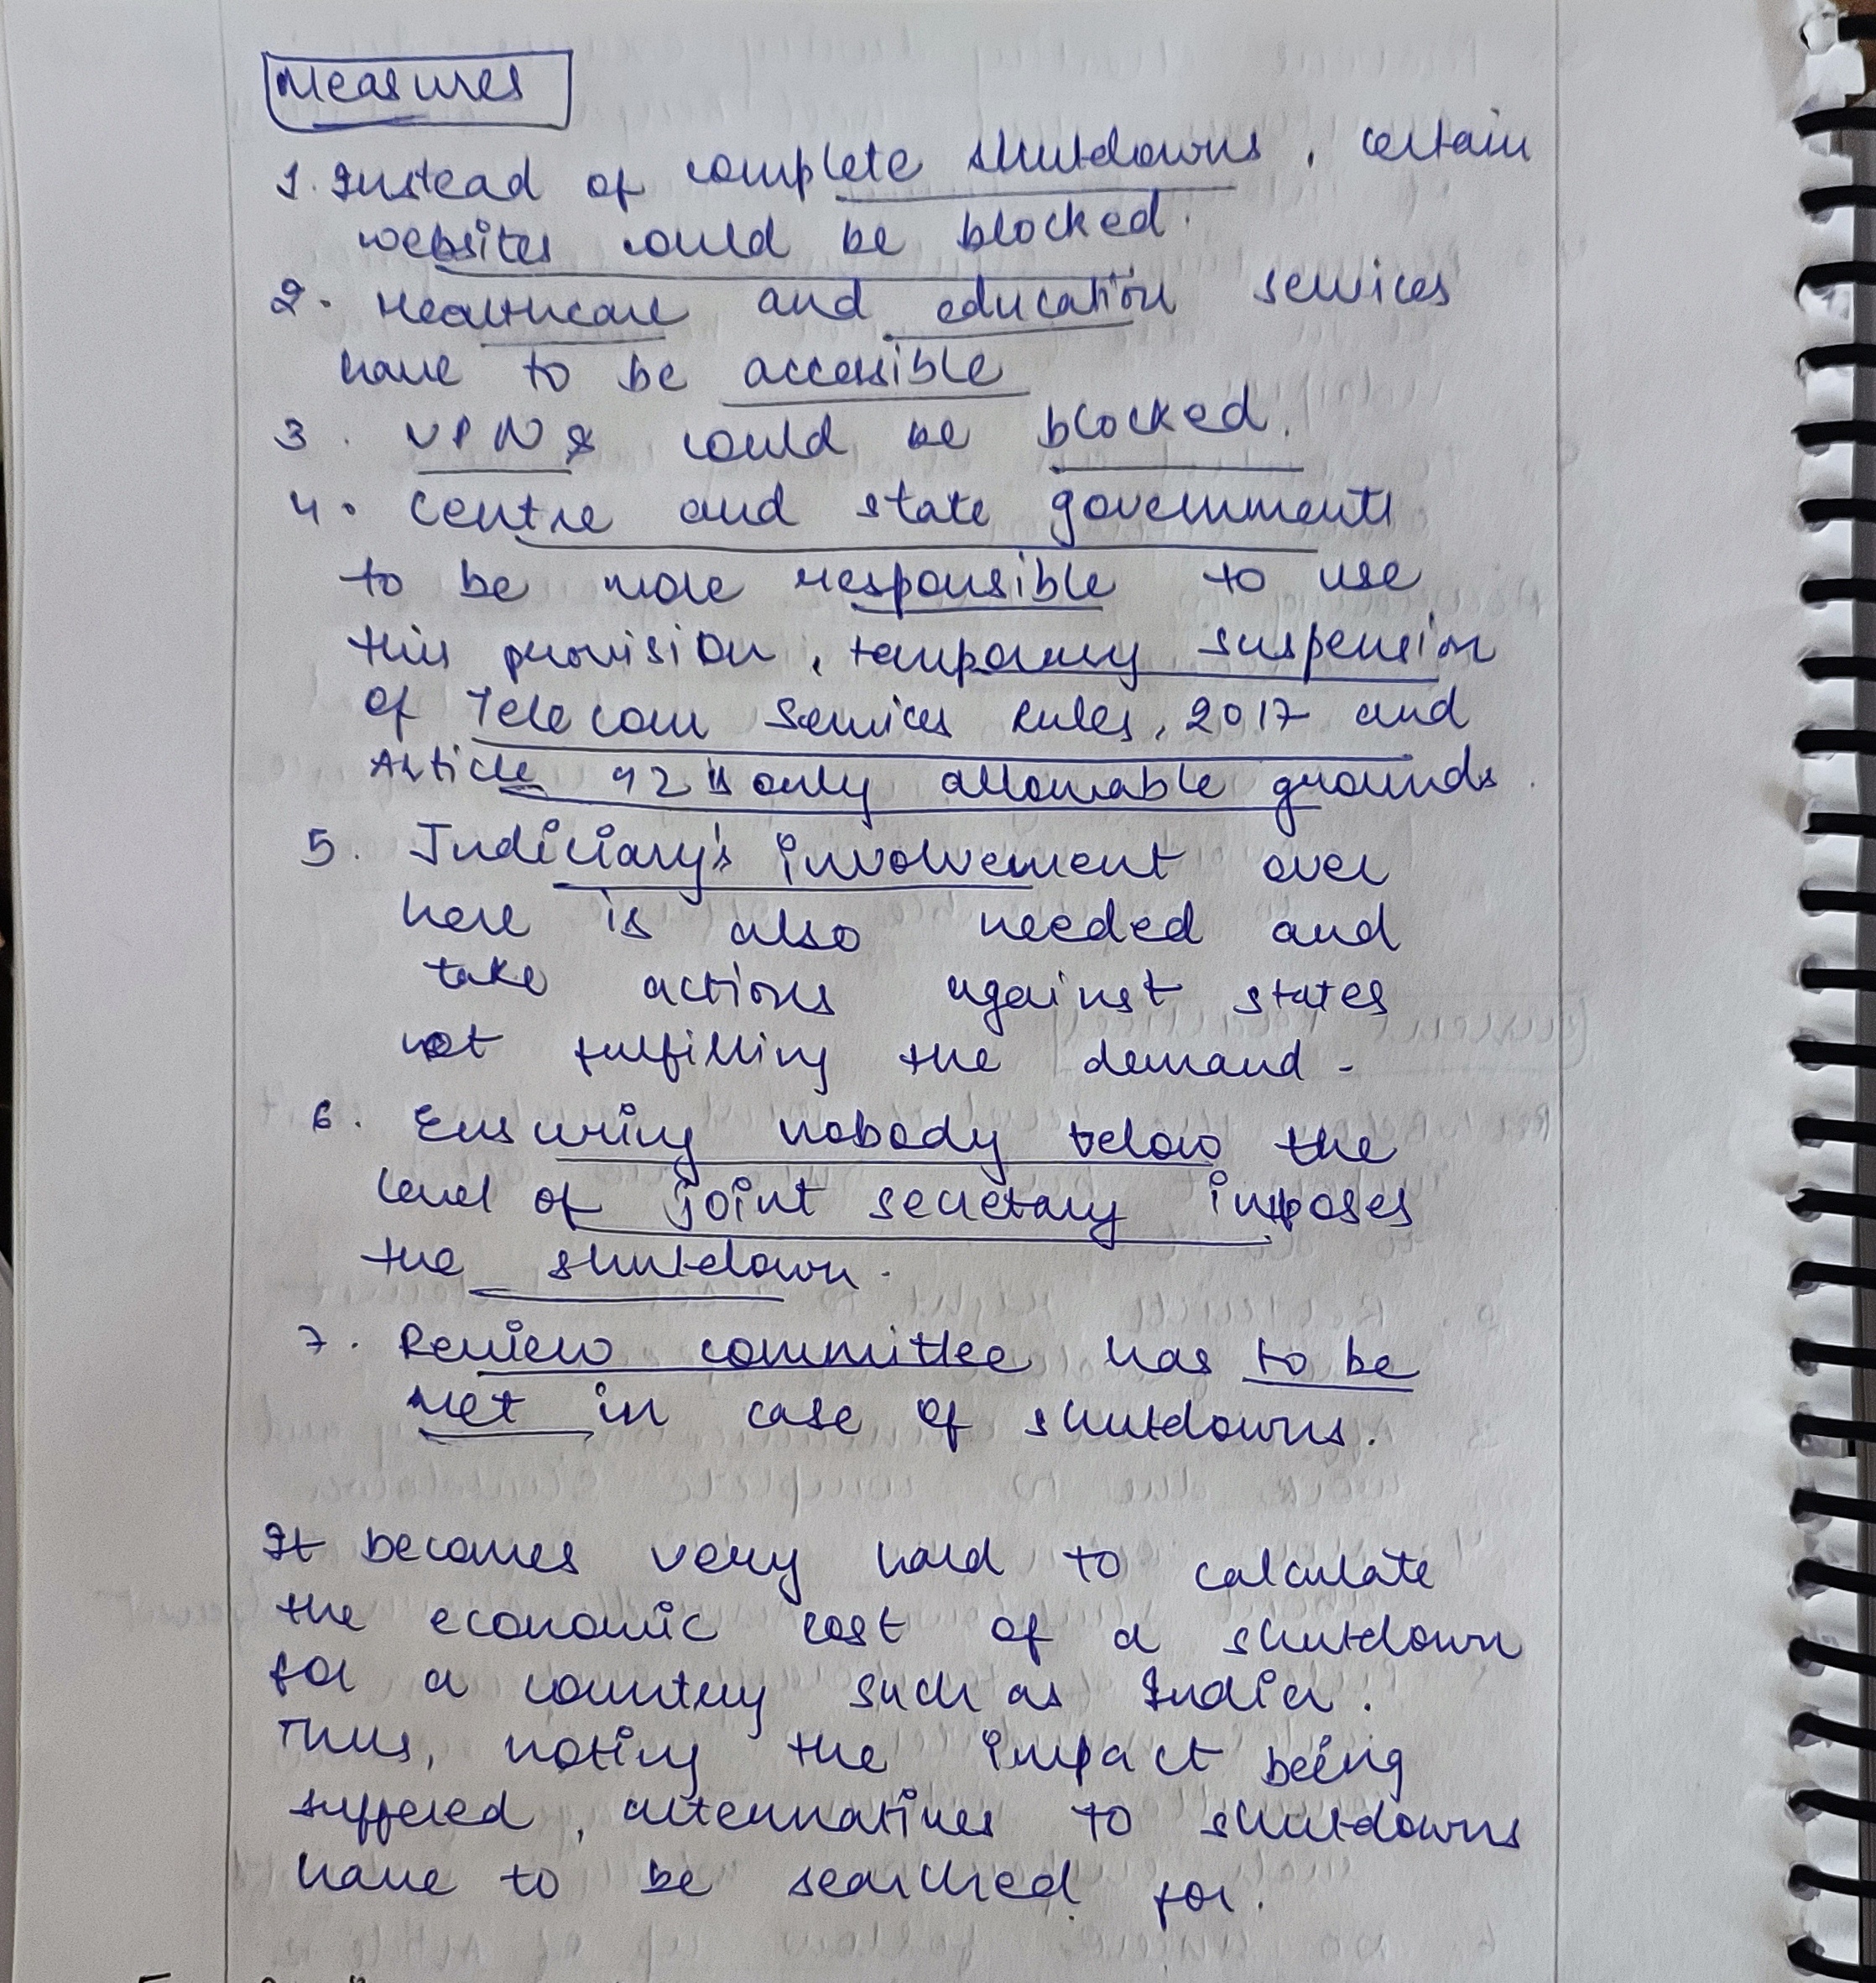 Measures
1. Instead of complete shutdowns, certain
websites could be blocked.
2. Healthcare and education services
have to be accessible
3. VPNs could be blocked.
4. Centre and state governments
to be more responsible to use
this provision, temporary suspension
of Telecom Services Rules, 2017 and
Article 92's only allowable grounds.
5. Judiciary's involvement over
here is also needed and
take actions against states
not fulfilling the demand.
6. Ensuring nobody below the
level of joint secretary imposes
the shutdown.
7. Review committee has to be
met in case of shutdowns.
It becomes very hard to calculate
the economic cost of a shutdown
for a country such as India.
Thus, noting the impact being
suffered, alternatives to shutdowns
have to be searched for.